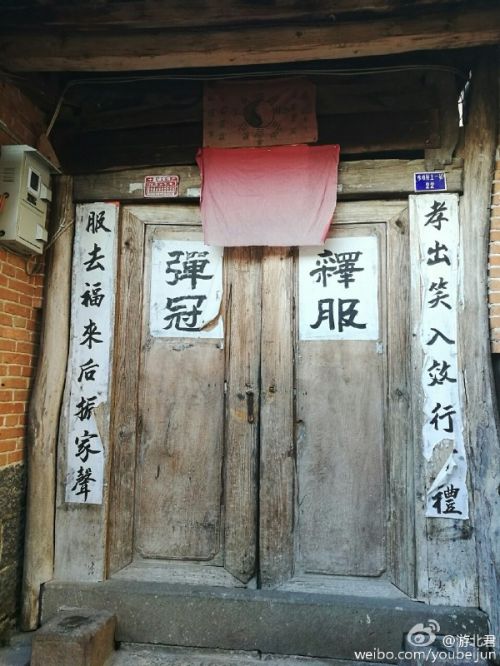 22
孝出笑入效行禮
服去福來后振家聲
釋服
彈冠
@游北君
weibo.com/youbeijun